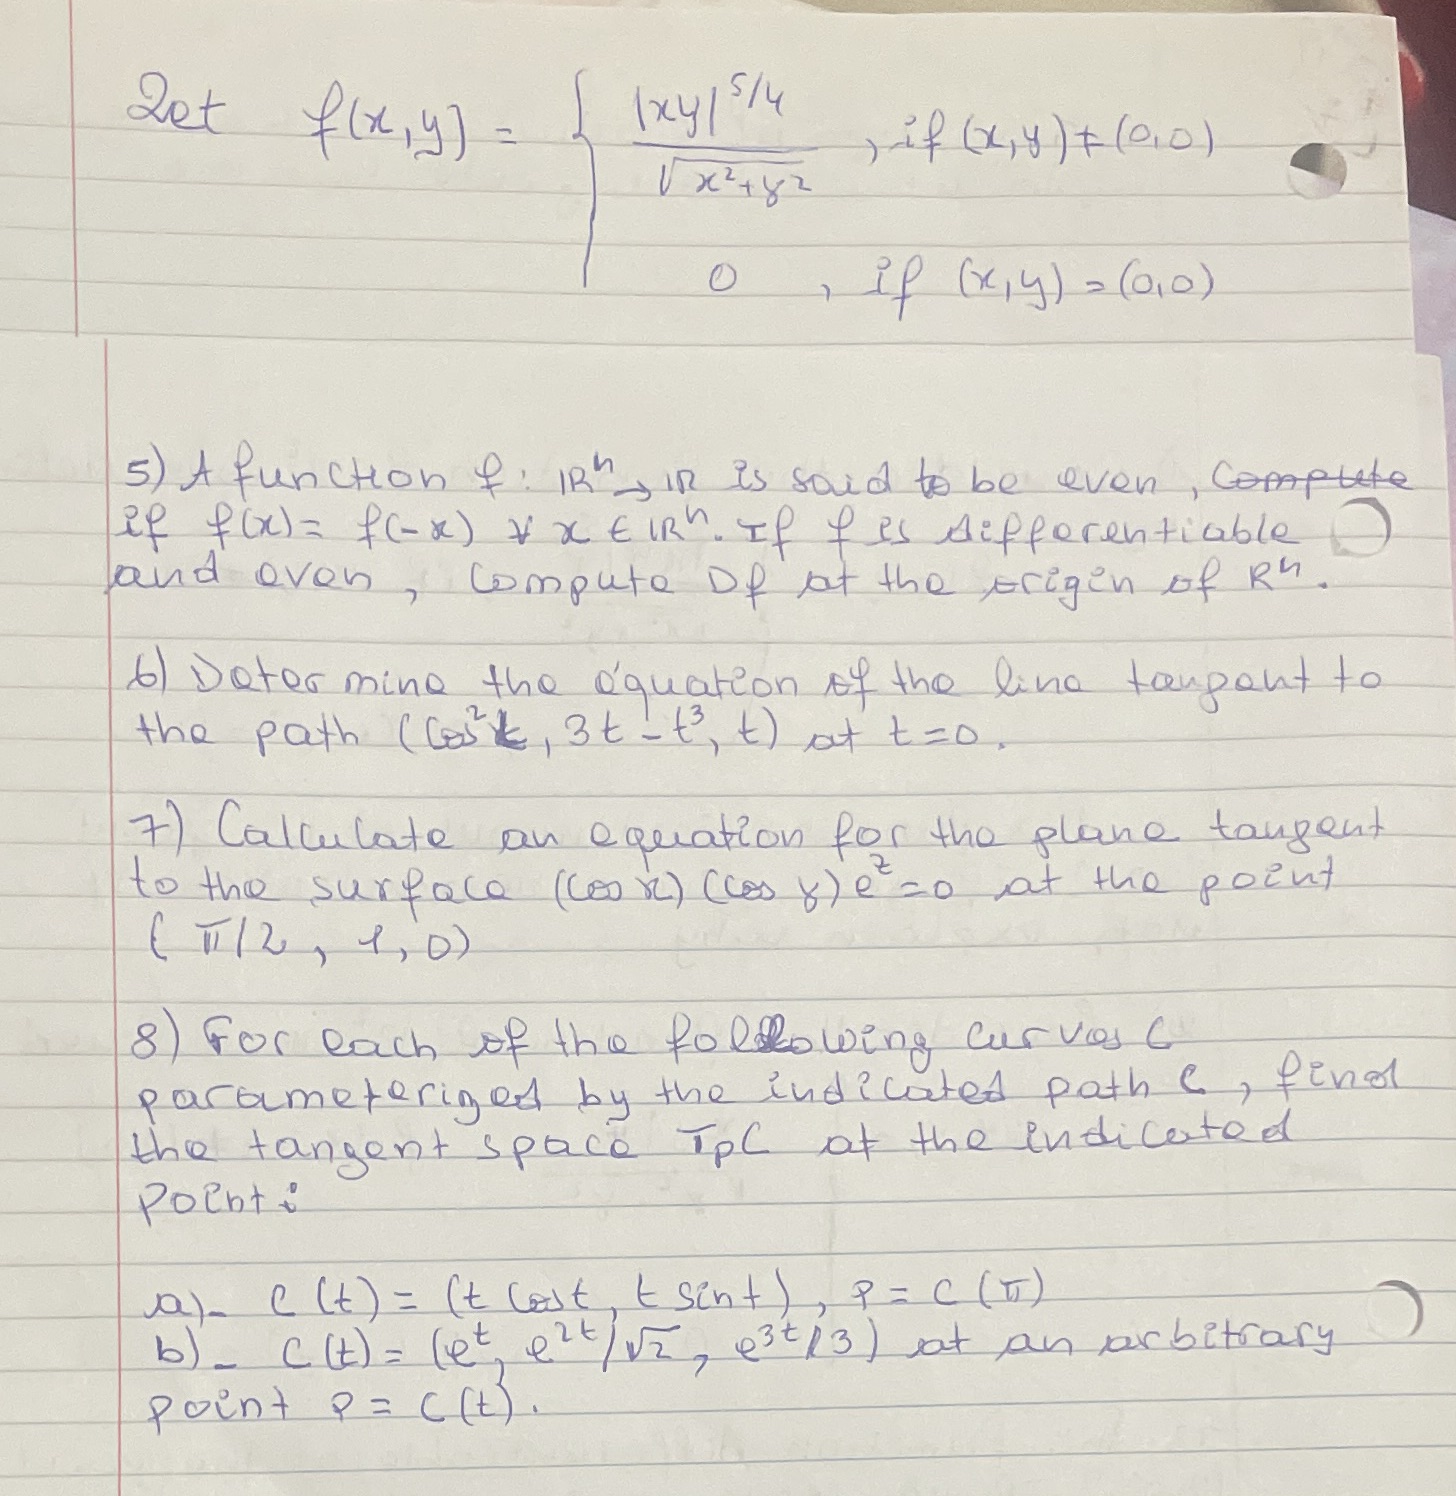 Let f(x,y) = { |xy|^5/4 / √x²+y² , if (x,y) ≠ (0,0)
0 , if (x,y) = (0,0)
5) A function f: ℝⁿ → ℝ is said to be even, ~~Compute~~
if f(x) = f(-x) ∀ x ∈ ℝⁿ. If f is differentiable
and even, compute Df at the origin of Rⁿ.
6) Determine the equation of the line tangent to
the path (cos²t, 3t - t³, t) at t=0.
7) Calculate an equation for the plane tangent
to the surface (cos x) (cos y) e^z = 0 at the point
(π/2, 1, 0)
8) For each of the following curves C
parameterized by the indicated path c, find
the tangent space TpC at the indicated
point:
a)- c(t) = (t cos t, t sin t), P = c(π)
b)- c(t) = (e^t, e^2t/√2, e^3t/3) at an arbitrary
point P = c(t).